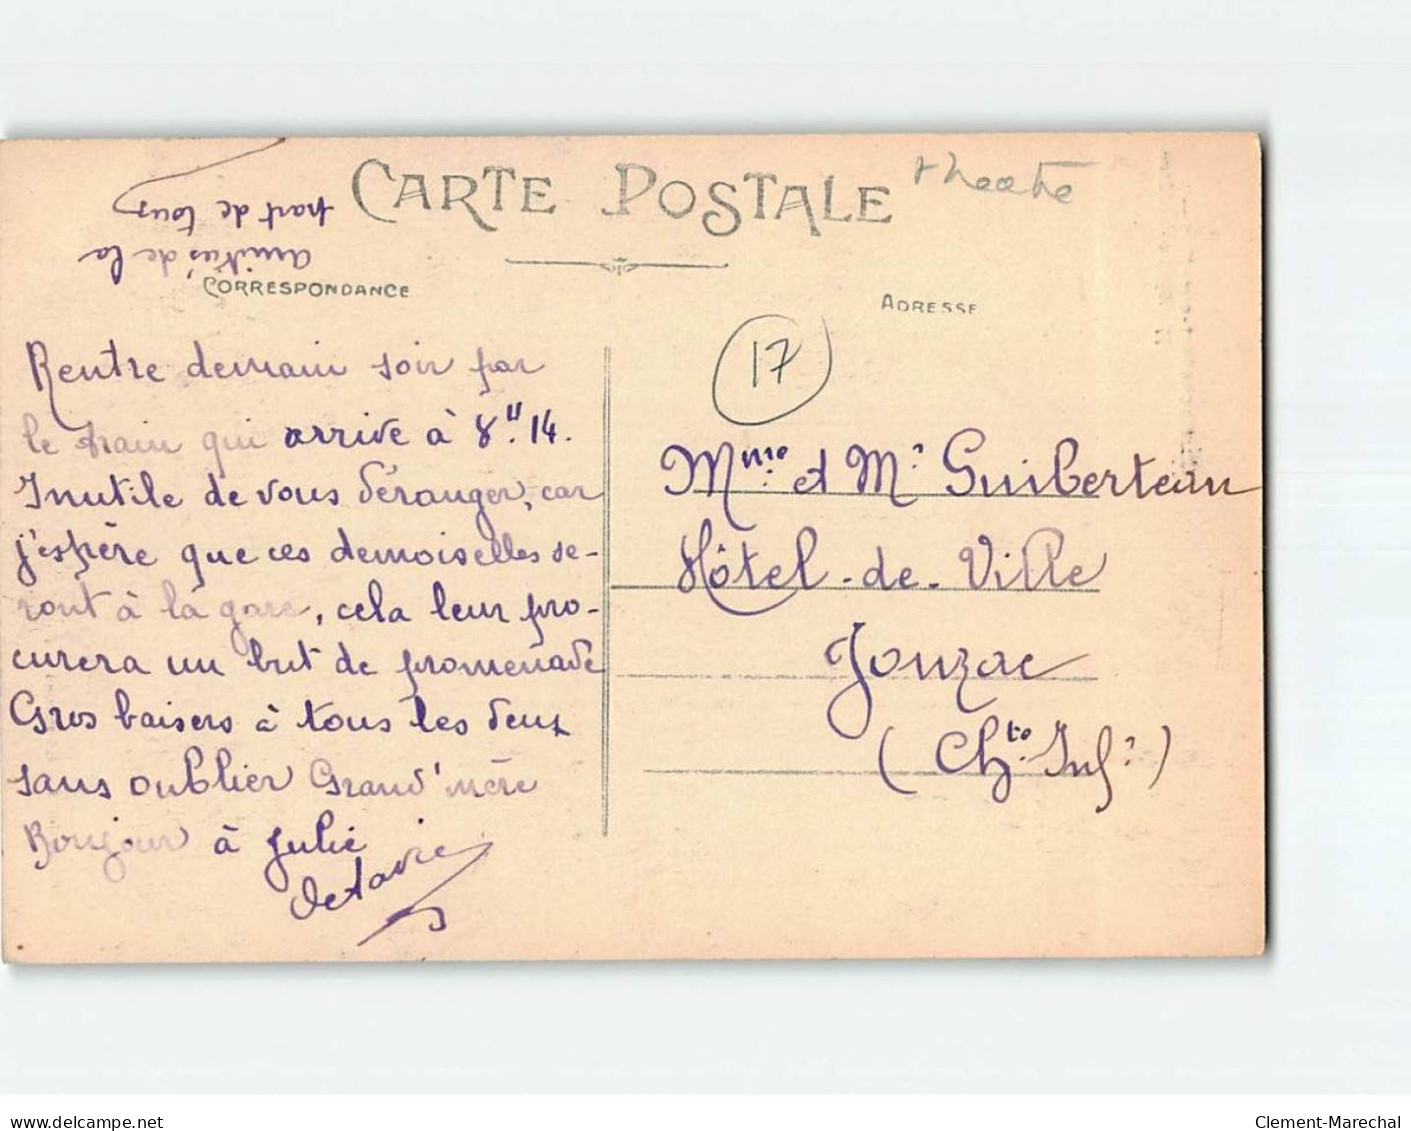 amitiés de la
part de tous
CARTE POSTALE
theatre
CORRESPONDANCE
ADRESSE
Rentre demain soir par
le train qui arrive à 8.H 14.
Inutile de vous déranger, car
j'espère que ces demoiselles se-
ront à la gare, cela leur pro-
curera un but de promenade
Gros baisers à tous les deux
sans oublier Grand'mère
Bonjour à Julie
Octavie
17
Mme et Mr Guiberteau
Hôtel-de-Ville
Jonzac
(Chte Infre)
www.delcampe.net
Clement-Marechal